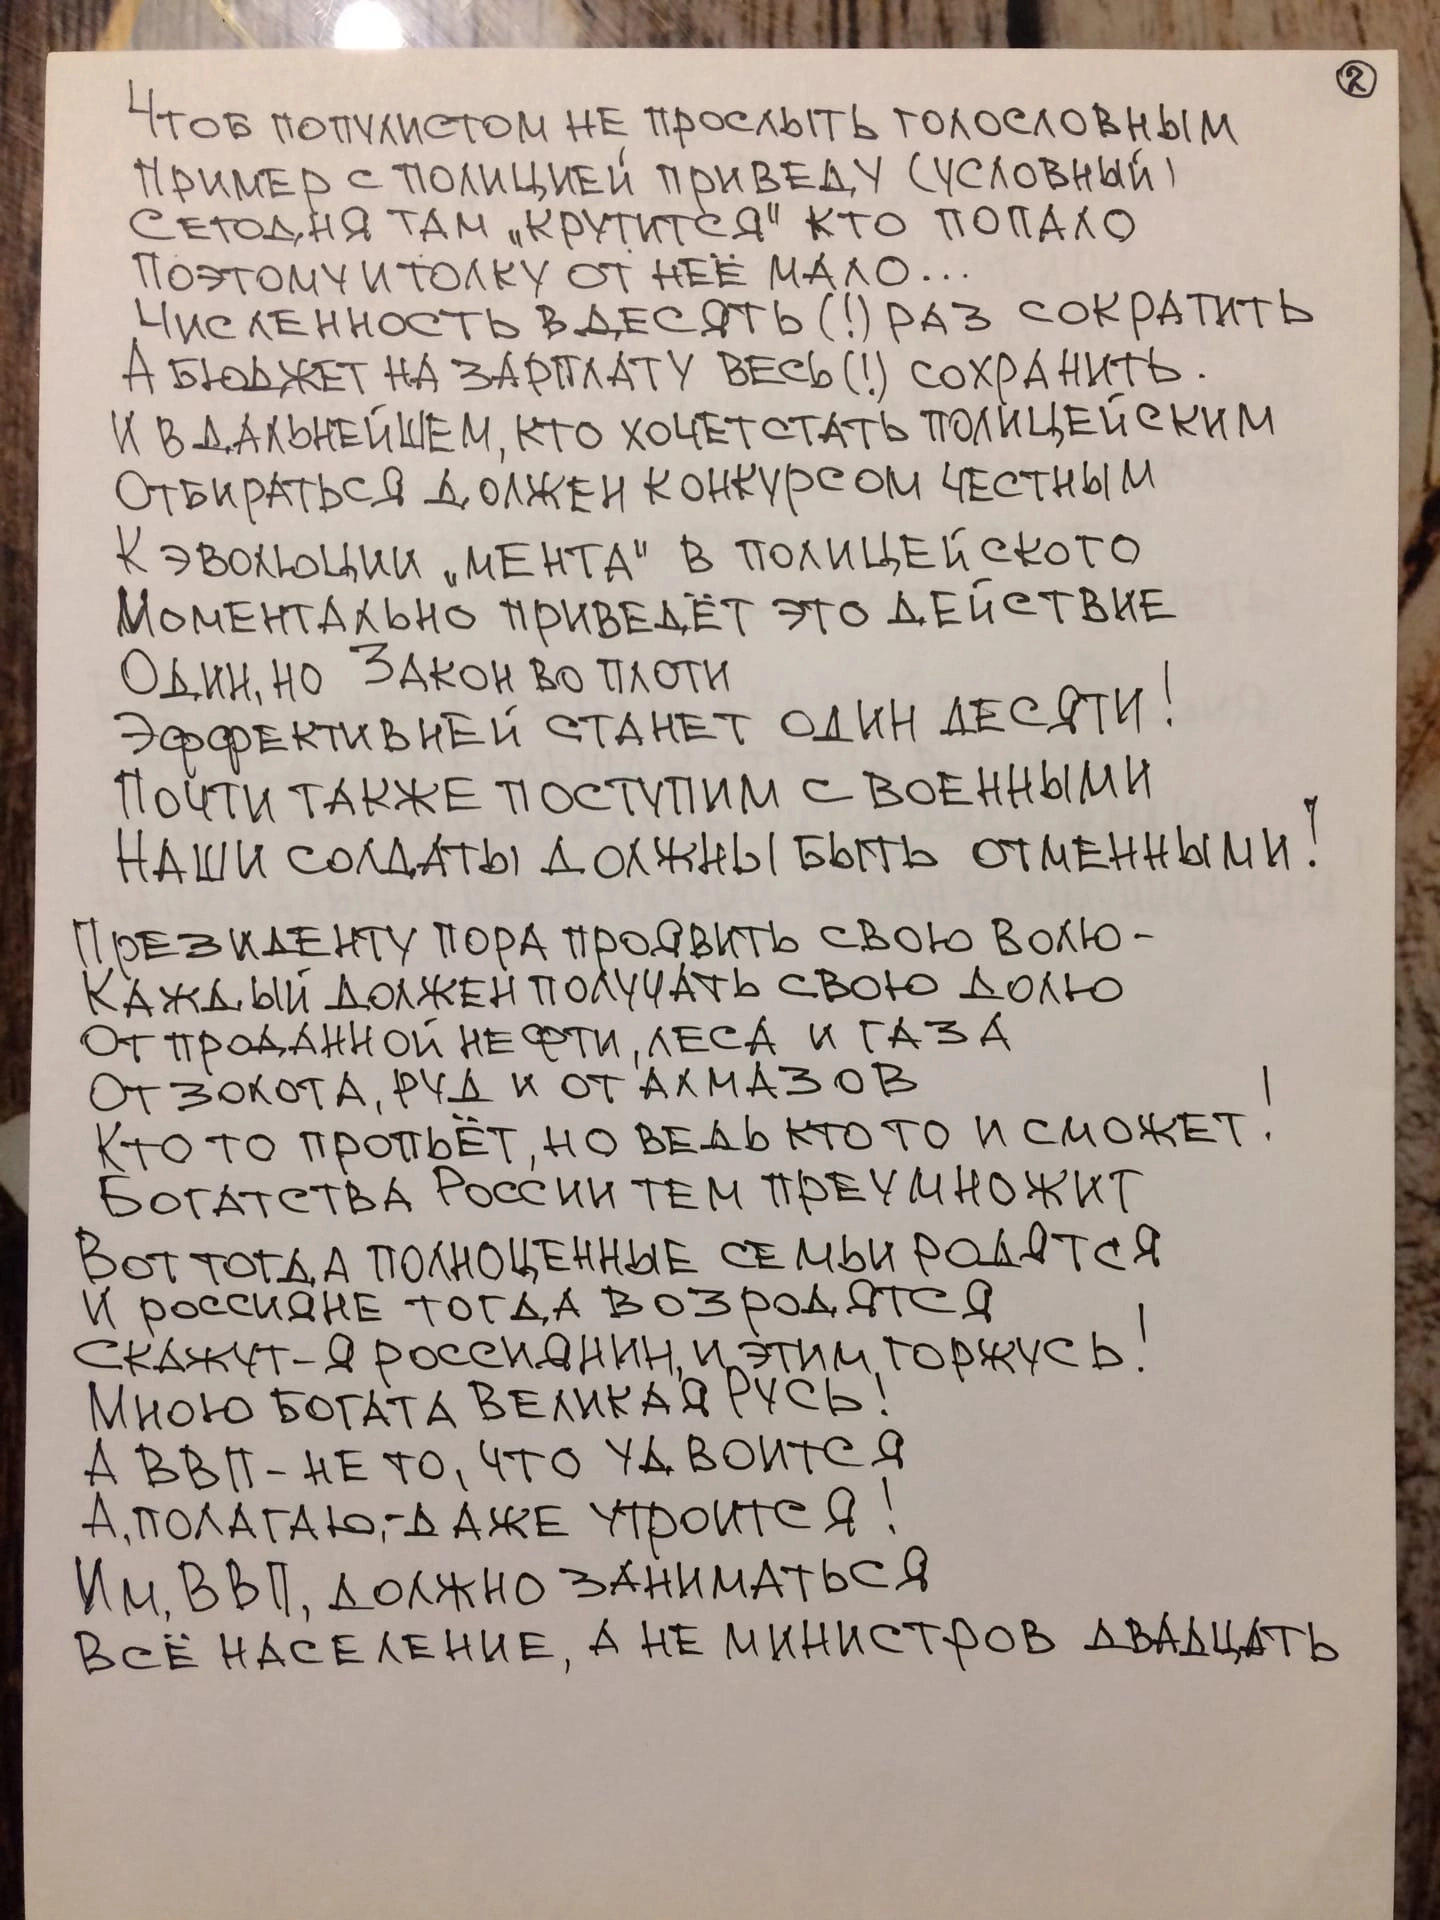 2
Чтоб популистом не прослыть голословным
Пример с полицией приведу (условный)
Сегодня там „крутится" кто попало
Поэтому и толку от неё мало...
Численность в десять (!) раз сократить
А бюджет на зарплату весь (!) сохранить.
И в дальнейшем, кто хочет стать полицейским
Отбираться должен конкурсом честным
К эволюции „мента" в полицейского
Моментально приведёт это действие
Один, но Закон во плоти
Эффективней станет один десяти!
Почти также поступим с военными
Наши солдаты должны быть отменными!
Президенту пора проявить свою волю-
Каждый должен получать свою долю
От проданной нефти, леса и газа
От золота, руд и от алмазов
Кто то пропьёт, но ведь кто то и сможет!
Богатства России тем преумножит
Вот тогда полноценные семьи родятся
И россияне тогда возродятся
Скажут-я россиянин, и этим горжусь!
Мною богата Великая Русь!
А ВВП-не то, что удвоится
А, полагаю,-даже утроится!
Им, ВВП, должно заниматься
Всё население, а не министров двадцать